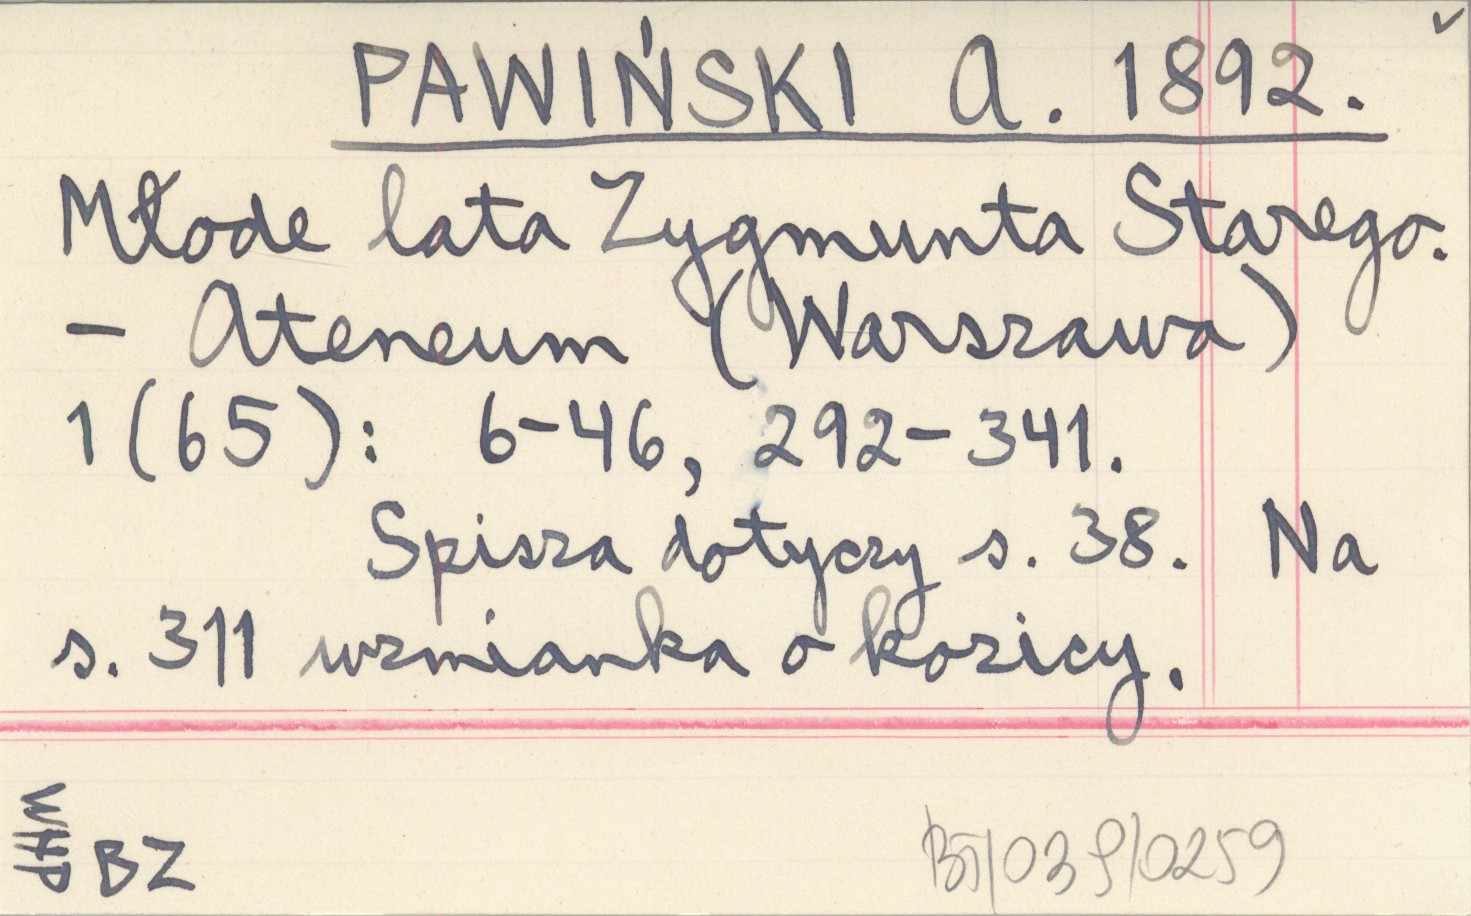 PAWIŃSKI A. 1892.
Młode lata Zygmunta Starego.
- Ateneum (Warszawa)
1(65): 6-46, 292-341.
Spisza dotyczy s. 38. Na
s. 311 wzmianka o kozicy.
BZ